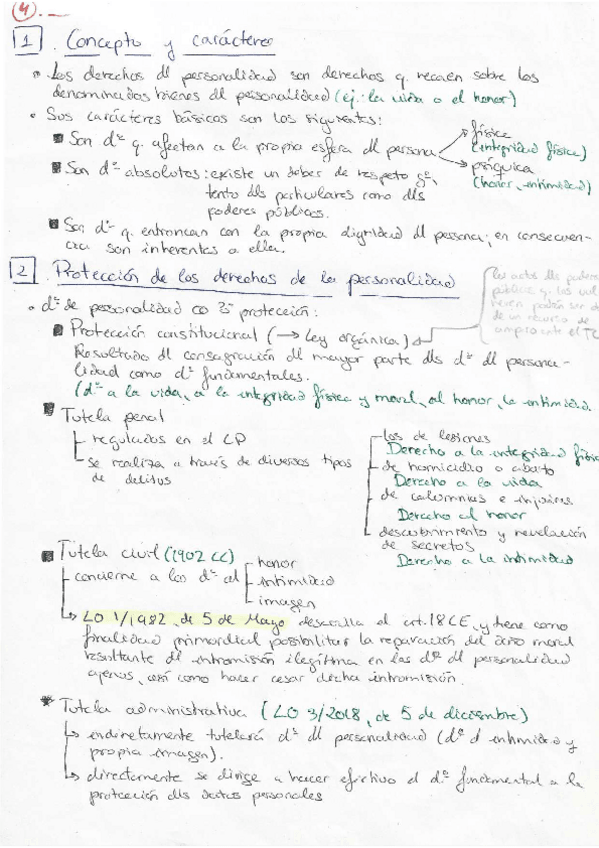 4.
1 Concepto y carácteres
• Los derechos dl personalidad son derechos q. recaen sobre los
denominados bienes dl personalidad (ej: la vida o el honor)
• Sus carácteres básicos son los siguientes:
■ Son dº q. afectan a la propia esfera dl persona
física
(integridad física)
psíquica
(honor, intimidad)
■ Son dº absolutos: existe un deber de respeto gº,
tanto dls particulares como dls
poderes públicos.
■ Son dº q. entroncan con la propia dignidad dl persona; en consecuen-
cia son inherentes a ella.
2 Protección de los derechos de la personalidad
los actos dls poderes
públicos q. los vul
neren
de un recurso de
amparo ante el TC
• dº de personalidad
protección:
■ Protección constitucional (→ Ley orgánica)
Resultado dl consagración dl mayor parte dls dº dl persona-
lidad como dº fundamentales.
(dº a la vida, a la integridad física y moral, al honor, la intimidad.
■ Tutela penal
- regulados en el CP
- se realiza a través de diversos tipos
de delitos
- los de lesiones
Derecho a la integridad física
- de homicidio o aborto
Derecho a la vida
- de calumnias e injurias
Derecho al honor
- descubrimiento y revelación
de secretos
Derecho a la intimidad
■ Tutela civil (1902 CC)
- concierne a los dº al
- honor
- intimidad
- imagen
→ LO 1/1982, de 5 de Mayo desarrolla el art. 18 CE, y tiene como
finalidad primordial posibilitar la reparación del daño moral
resultante dl intromisión ilegítima en los dº dl personalidad
ajenos, así como hacer cesar dicha intromisión.
■ Tutela administrativa (LO 3/2018, de 5 de diciembre)
→ indirectamente tutelará dº dl personalidad (dº d intimidad y
propia imagen).
→ directamente se dirige a hacer efectivo el dº fundamental a la
protección dls datos personales